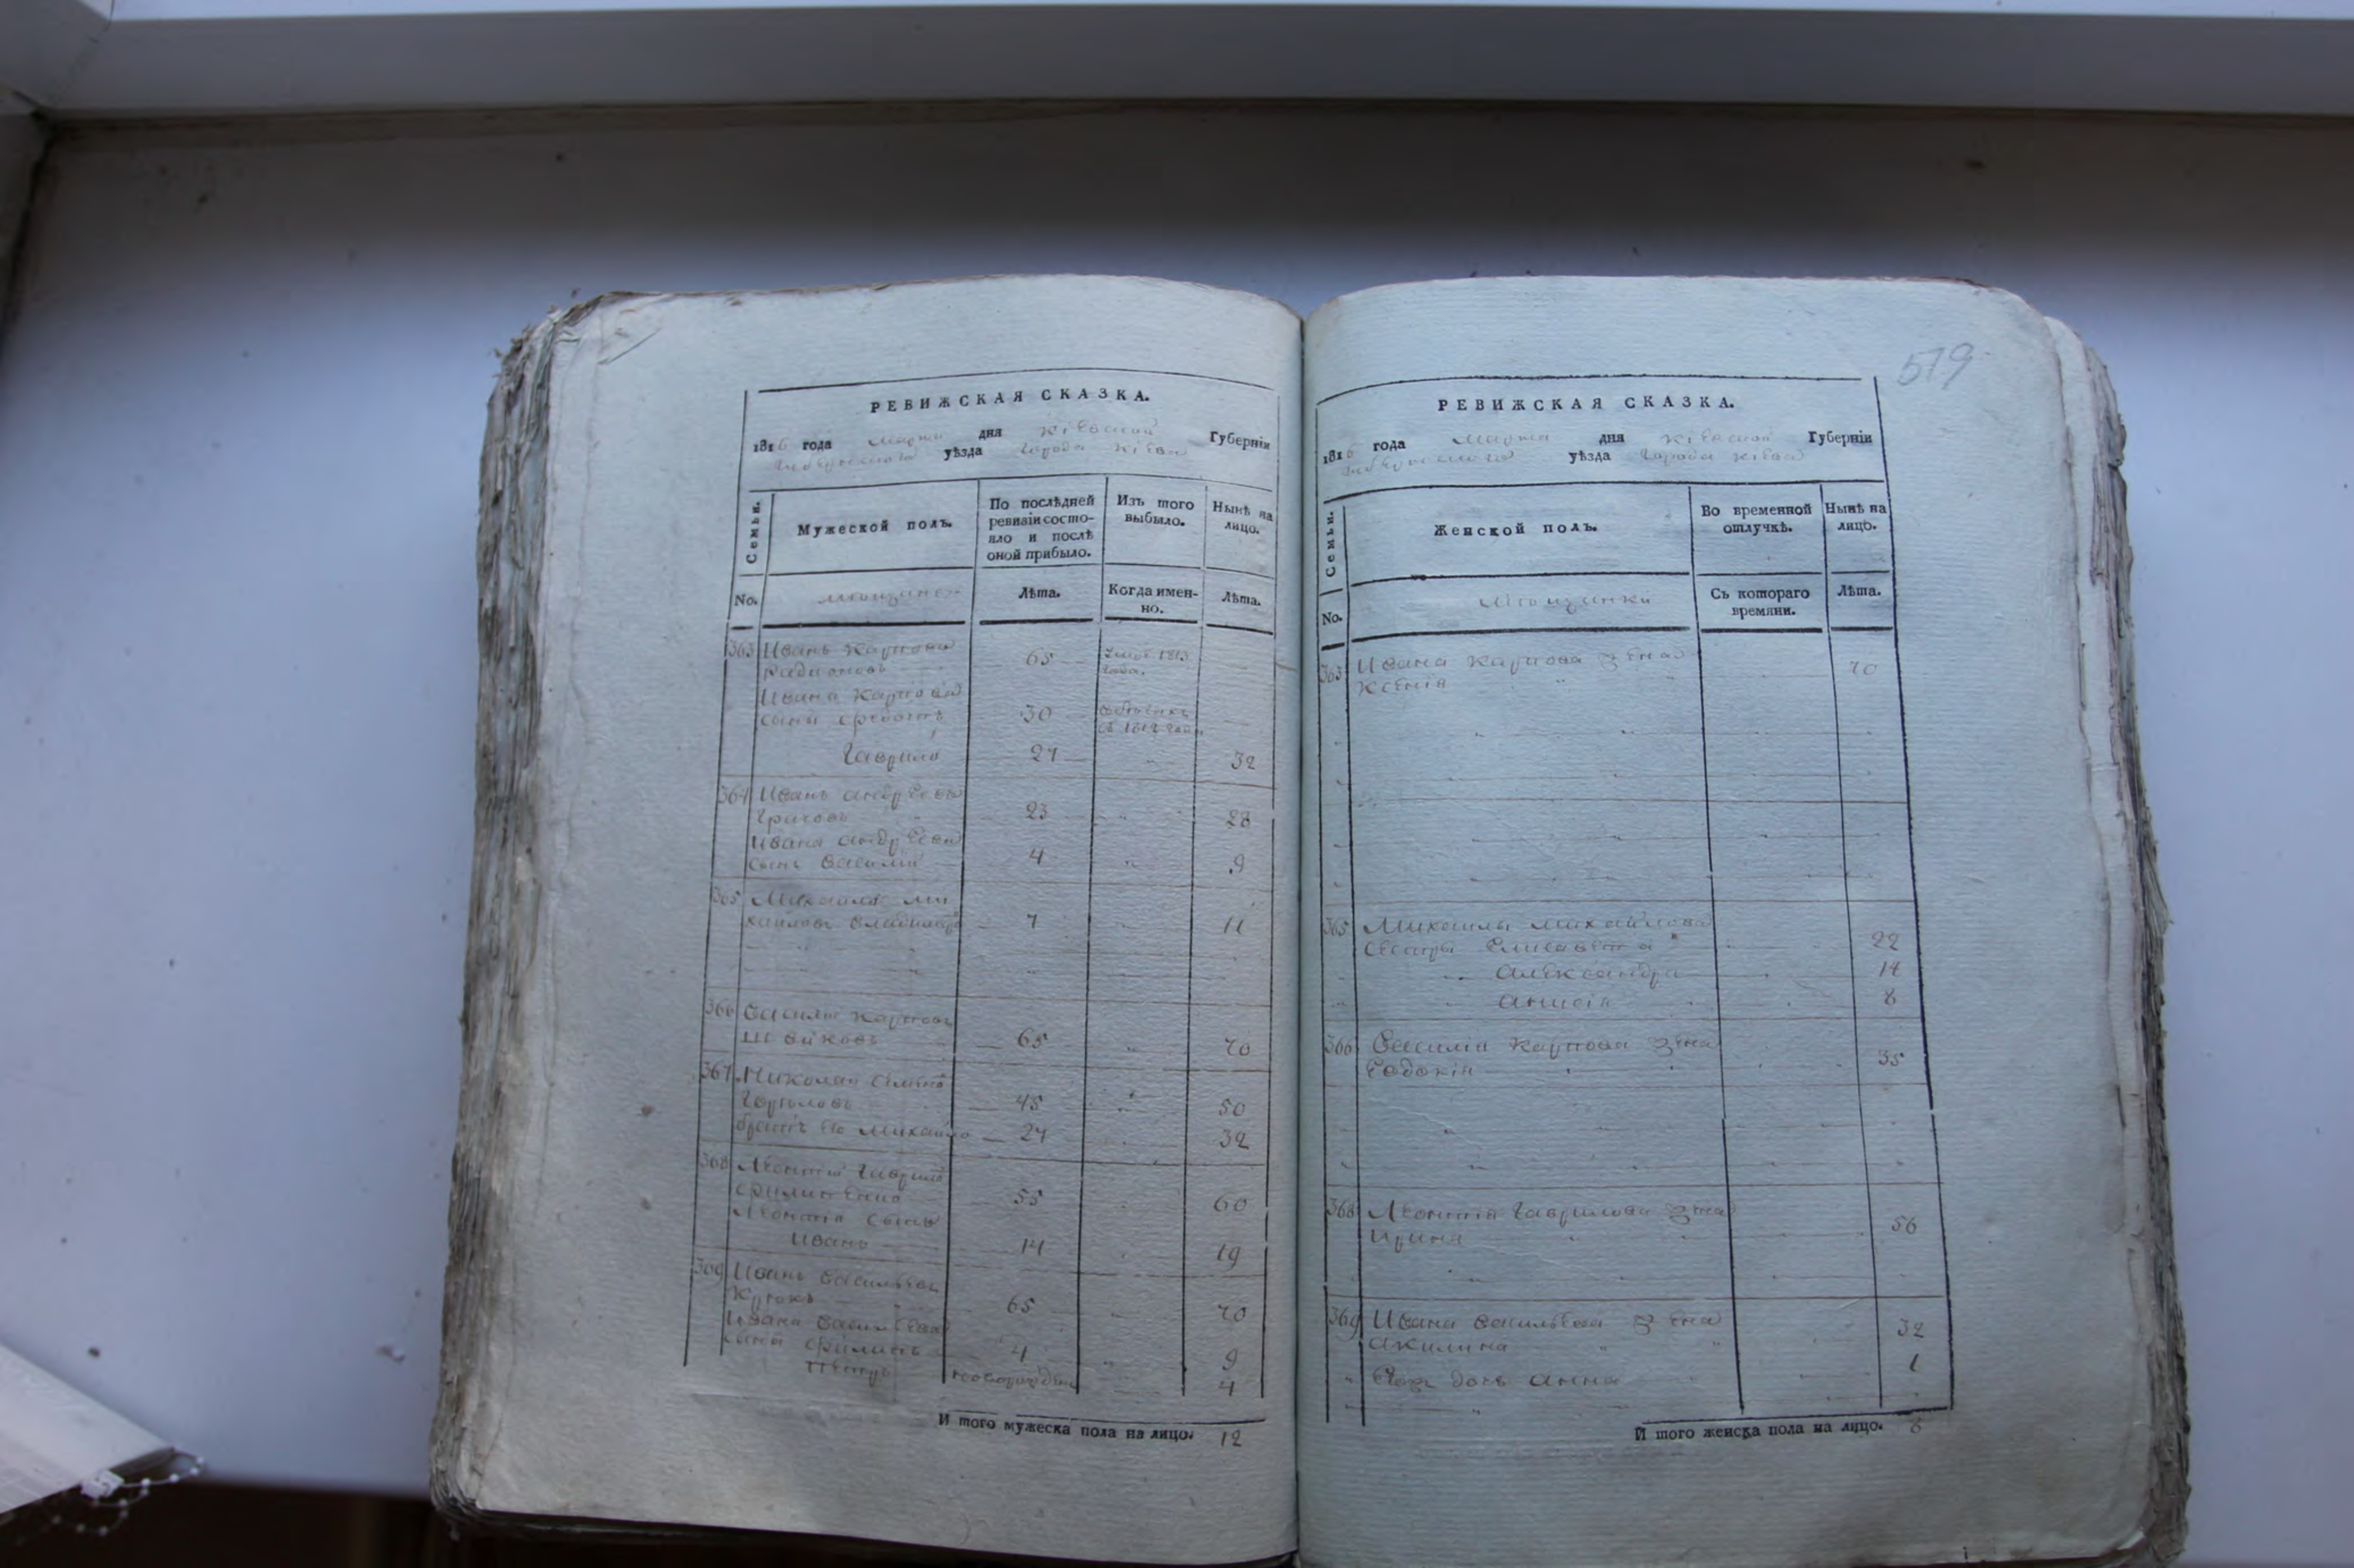 РЕВИЖСКАЯ СКАЗКА.
1816 года марта дня Кіевской Губерніи
уѣзда Города Кіева
Семьи.
Мужеской полъ.
По послѣдней ревизіи состояло и послѣ оной прибыло.
Изъ того выбыло.
Нынѣ на лицо.
No.
мѣщане
Лѣта.
Когда именно.
Лѣта.
363 Иванъ Карповъ
Радионовъ 65 1813 года.
Ивана Карпова
сыны Федотъ 30 съ 1812 года
Гаврило 27 32
364 Иванъ Андреевъ
23 28
Ивана Андреева
сынъ Василий 4 9
365 Михайла Ми
хайловъ 7 11
366 Василий Карповъ
65 70
367 Николай
45 50
братъ его Михайло 27 32
368 Леонтий Гаврилов
55 60
Леонтия сынъ
Иванъ 14 19
369 Иванъ Васильевъ
Крюкъ 65 70
Ивана Васильева
сыны Филипъ 4 9
Петръ новорожден 4
И того мужеска пола на лицо. 12
519
РЕВИЖСКАЯ СКАЗКА.
1816 года марта дня Кіевской Губерніи
уѣзда Города Кіева
Семьи.
Женской полъ.
Во временной отлучкѣ.
Нынѣ на лицо.
No.
мѣщанки
Съ котораго времяни.
Лѣта.
363 Ивана Карпова жена
Ксенія 70
365 Михаилы Михайлова
сестры Елисавета 22
Александра 14
8
366 Василія Карпова жена
Евдокія 35
368 Леонтія Гаврилова жена
Ирина 56
369 Ивана Васильева жена
Акилина 32
дочь Анна 1
И того женска пола на лицо. 8